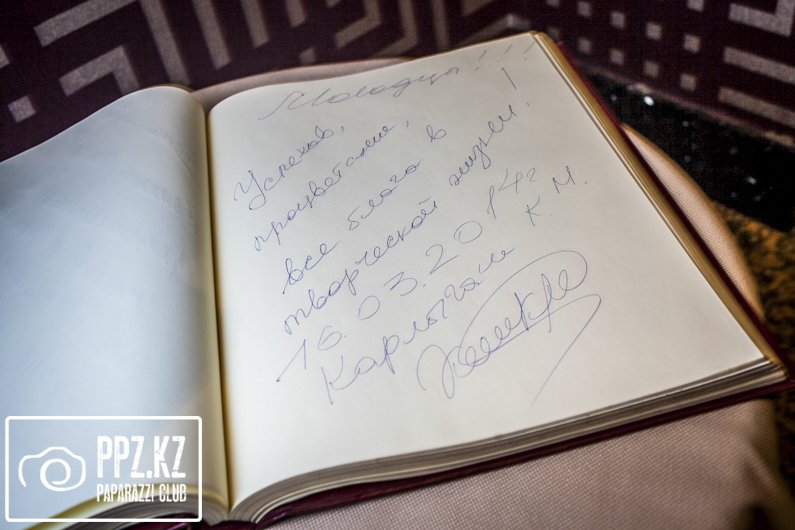 Молодцы!!!
Успехов,
процветания,
все блага в
творческой жизни!
16.03.2014г
Карлыгаш К.М.
PPZ.KZ
PAPARAZZI CLUB